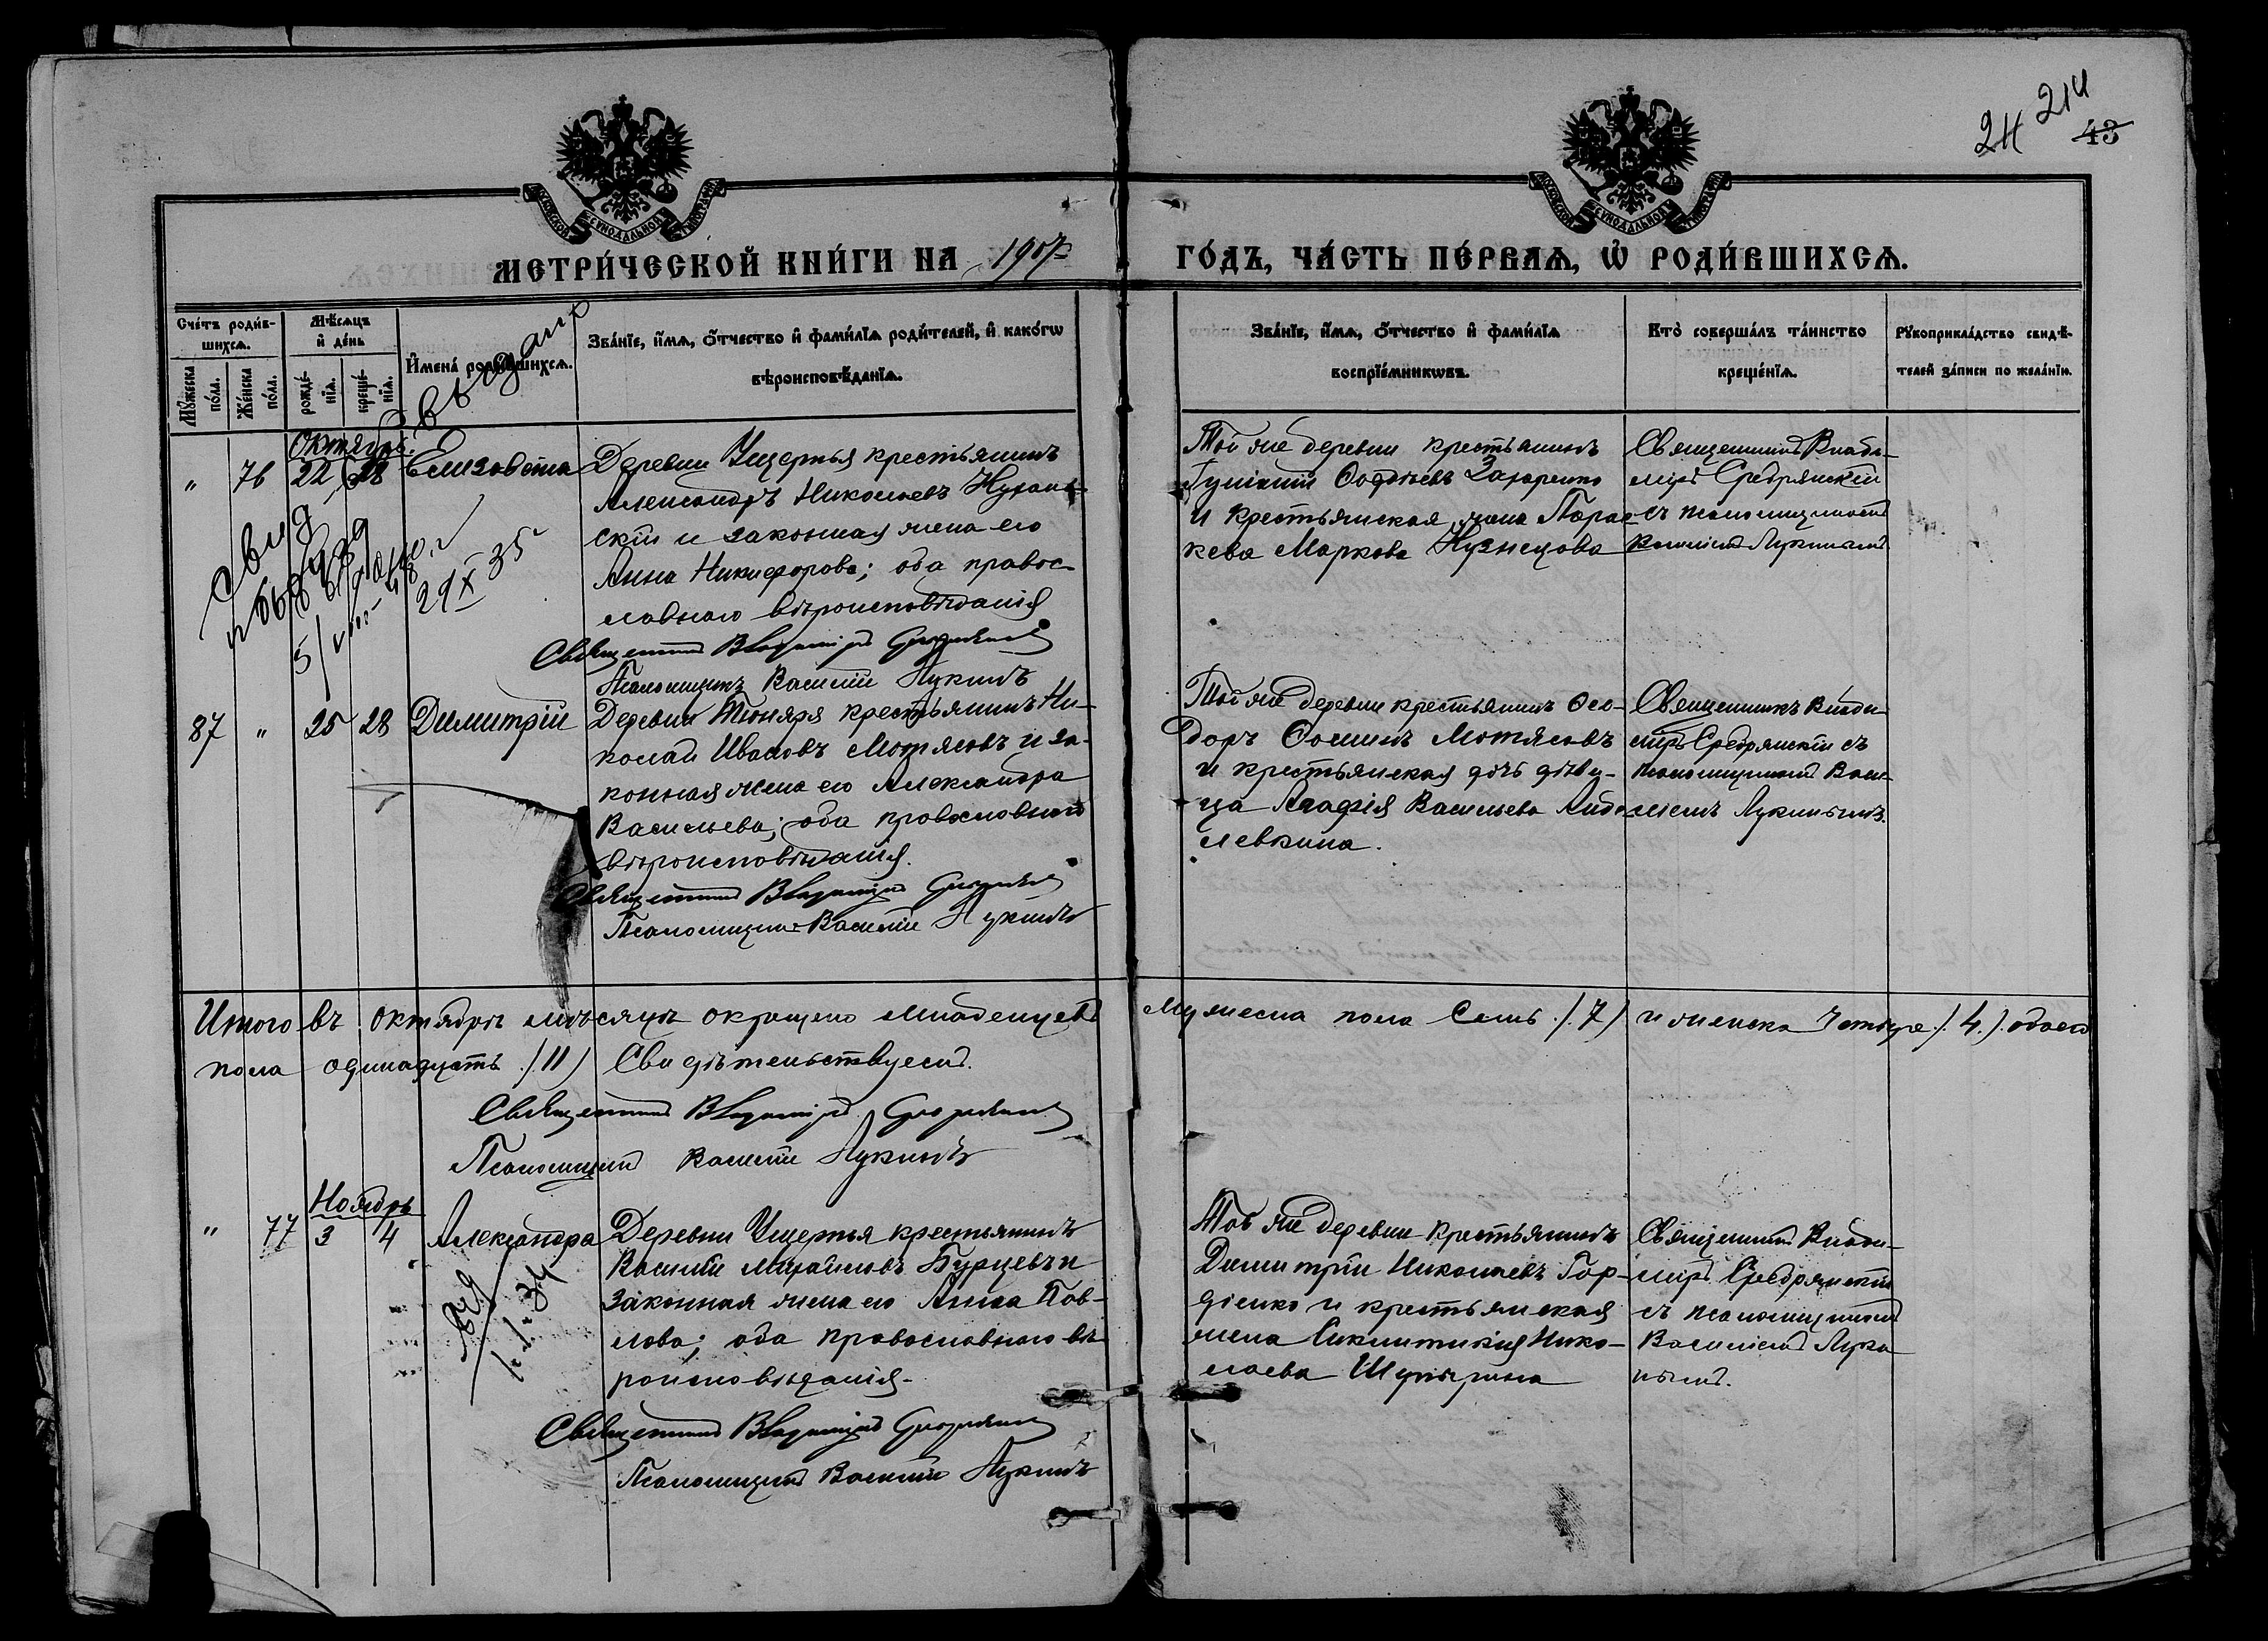 214
24
43
МОСКОВСКОЙ СѴНОДАЛЬНОЙ ТИПОГРАФІИ
МОСКОВСКОЙ СѴНОДАЛЬНОЙ ТИПОГРАФІИ
МЕТРИ́ЧЕСКОЙ КНИ́ГИ НА 1907 ГО́ДЪ, ЧА́СТЬ ПЕ́РВАѦ, Ѡ҆ РОДИ́ВШИХСѦ.
Сче́тъ роди́в-
шихсѧ.
Мꙋ́жеска по́ла.
Же́нска по́ла.
Мѣ́сѧцъ и҆ де́нь
рожде́-
нїѧ.
креще́-
нїѧ.
И҆мена̀ роди́вшихсѧ.
Зва́нїе, и҆́мѧ, ѻ҆́тчество и҆ фами́лїѧ роди́телей, и҆ како́гѡ
вѣроисповѣ́данїѧ.
Зва́нїе, и҆́мѧ, ѻ҆́тчество и҆ фами́лїѧ
воспрїе́мникѡвъ.
Кто̀ соверша́лъ та́инство
креще́нїѧ.
Рꙋкоприкла́дство свидѣ́-
телей за́писи по жела́нїю.
выдано
Октябрь.
" 76 22 28 Елизавета
Деревни Ущерпья крестьянинъ
Александръ Николаевъ
скій и законная жена его
Анна Никифорова; оба правос-
лавнаго вѣроисповѣданія
Священникъ Владиміръ Средрянскій
Псаломщикъ Василій Лукинъ
Той же деревни крестьянинъ
Захаренко
и крестьянская жена Парас-
кева Маркова Кузнецова
Священникъ Влади-
міръ Средрянскій
съ псаломщикомъ
Василіемъ Лукинымъ
29 X 35
87 " 25 28 Димитрій
Деревни Тюняря крестьянинъ Ни-
колай Ивановъ Мотясовъ и за-
конная жена его Александра
Васильева; оба православнаго
вѣроисповѣданія.
Священникъ Владиміръ Средрянскій
Псаломщикъ Василій Лукинъ
Той же деревни крестьянинъ Ѳео-
доръ Ѳоминъ Мотясовъ
и крестьянская дочь дѣви-
ца Агафія Васильева
левкина.
Священникъ Влади-
міръ Средрянскій съ
псаломщикомъ Васи-
ліемъ Лукинымъ.
Итого въ октябрѣ мѣсяцѣ окрещено младенцевъ мужеска пола семь /.7/ и женска четыре /.4./ обоего
пола одинадцать /.11/ Свидѣтельствуемъ.
Священникъ Владиміръ Средрянскій
Псаломщикъ Василій Лукинъ
Ноябрь
" 77 3 4 Александра
Деревни Ущерпья крестьянинъ
Василій Михайловъ Бурцевъ и
законная жена его Анна Пав-
лова; оба православнаго вѣ-
роисповѣданія.
Священникъ Владиміръ Средрянскій
Псаломщикъ Василій Лукинъ
Той же деревни крестьянинъ
Димитрій Николаевъ Гор-
діенко и крестьянская
жена Сиклитикія Нико-
лаева
Священникъ Влади-
міръ Средрянскій
съ псаломщикомъ
Василіемъ Луки-
нымъ.